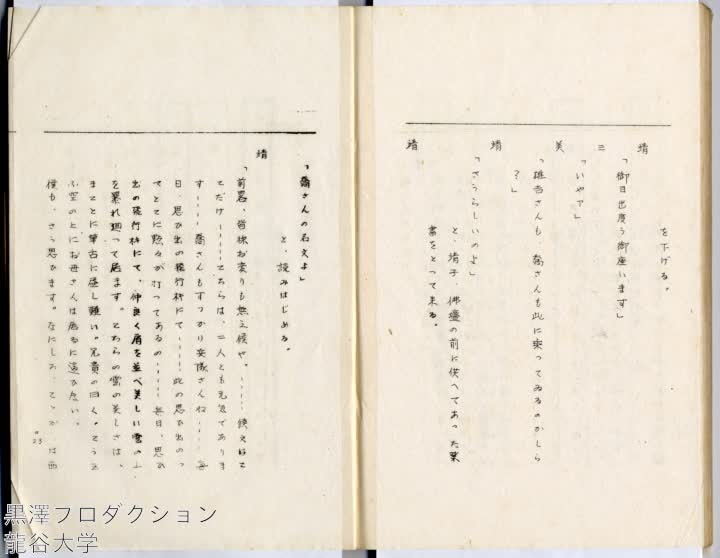 を下げる。
靖
「御目出度う御座います」
三
「いやア」
美
「雄吉さんも、喬さんも此に乗つてゐるのかしら
?」
靖
「さうらしいのよ」
と、靖子、佛壇の前に供へてあつた葉
書をとつて来る。
靖
「喬さんの名文よ」
と、読みはじめる。
靖
「前畧、皆様お変りも無之候や。……候文はこ
こだけ……こちらは、二人とも元気でありま
す……喬さんもすつかり兵隊さんね……毎
日、思ひ出の飛行機にて……此の思ひ出のつ
てとこに点々が打つてあるの……毎日、思ひ
出の飛行機にて、仲良く肩を並べ美しい雲の上
を暴れ廻つて居ます。こちらの雲の美しさは、
まことに筆舌に盡し難い。兄貴の曰く。こうゐ
ふ空の上にお母さんは居るに違ひない。
僕も、さう思ひます。なにしろ、こつちは西
"23
黒澤プロダクション
龍谷大学